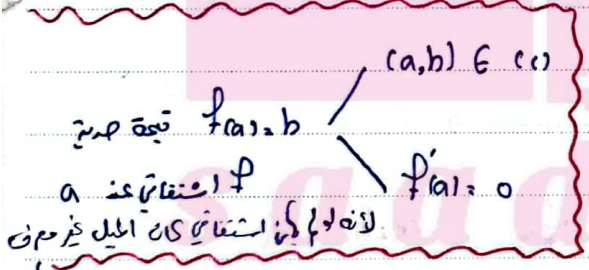 (a,b) ∈ (c)
f(a)=b قيمة حدية
f'(a)=0
f اشتقاقي عند a
لأنه لو لم يكن اشتقاقي كان الميل غير معرف